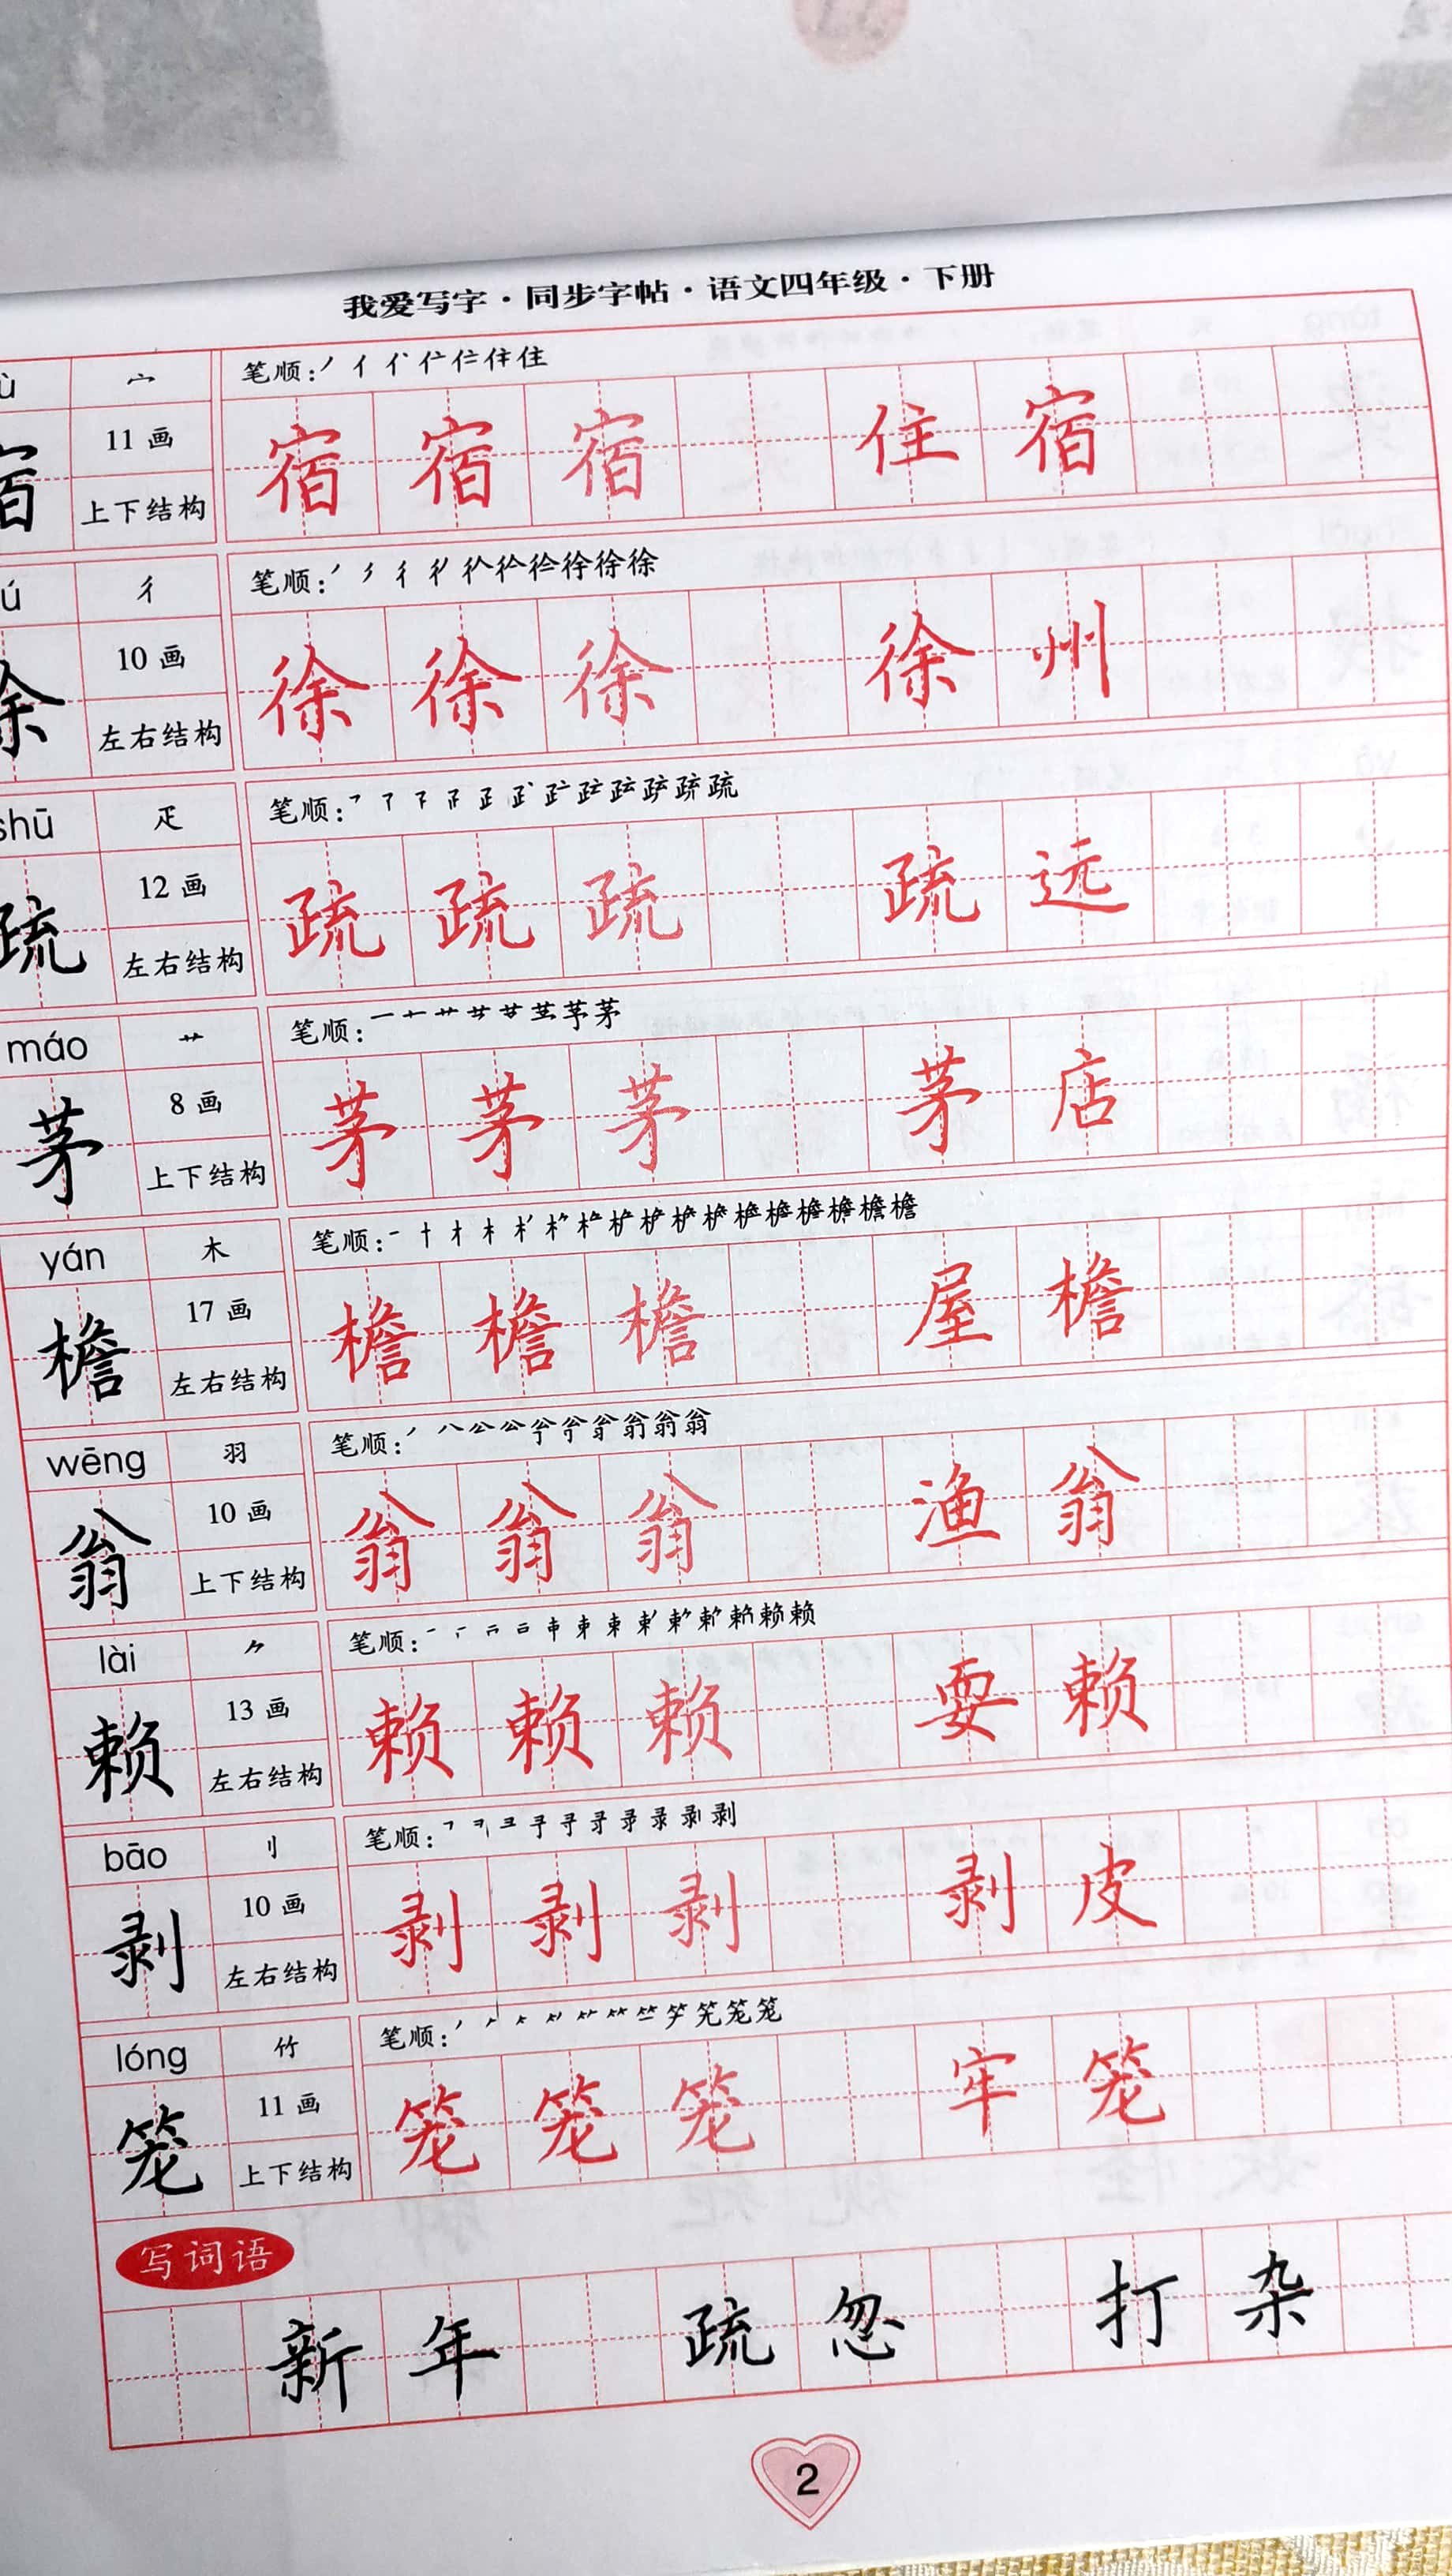 我爱写字·同步字帖·语文四年级·下册
宀 笔顺:丿亻亻亻亻住住
11画 宿宿宿 住宿
上下结构
彳 笔顺:
10画 徐徐徐 徐州
左右结构
shū 疋 笔顺:
疏 12画 疏疏疏 疏远
左右结构
máo 艹 笔顺:
茅 8画 茅茅茅 茅店
上下结构
yán 木 笔顺:
檐 17画 檐檐檐 屋檐
左右结构
wēng 羽 笔顺:
翁 10画 翁翁翁 渔翁
上下结构
lài ⺈ 笔顺:
赖 13画 赖赖赖 耍赖
左右结构
bāo 刂 笔顺:
剥 10画 剥剥剥 剥皮
左右结构
lóng 竹 笔顺:
笼 11画 笼笼笼 牢笼
上下结构
写词语
新年 疏忽 打杂
2